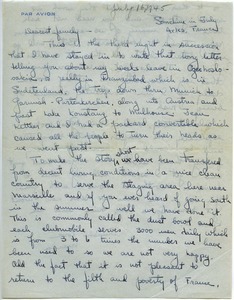 PAR AVION
Sometime in July
Dearest family -
This is the third night in succession
that I have stayed in to write that long letter
telling you about my week's leave in Czecho-
slovakia really in
Sudetenland. The trip down thru Munich to
Garmisch - Partenkirchen, along into Austria and
past Lake Konstanz to Mulhouse
and I
caused all the people to turn their heads as
we went past.
To make the story short we have been transferred
from decent living conditions in a nice clean
country to serve the staging area here near
Marseille and if you ever heard of going south
for the summer - well we have done it.
This is commonly called the dust bowl and
each clubmobile serves 3000 men daily which
is from 3 to 6 times the number we have
been used to so we are not very happy.
Add the fact that it is not pleasant to
return to the filth and poverty of France.